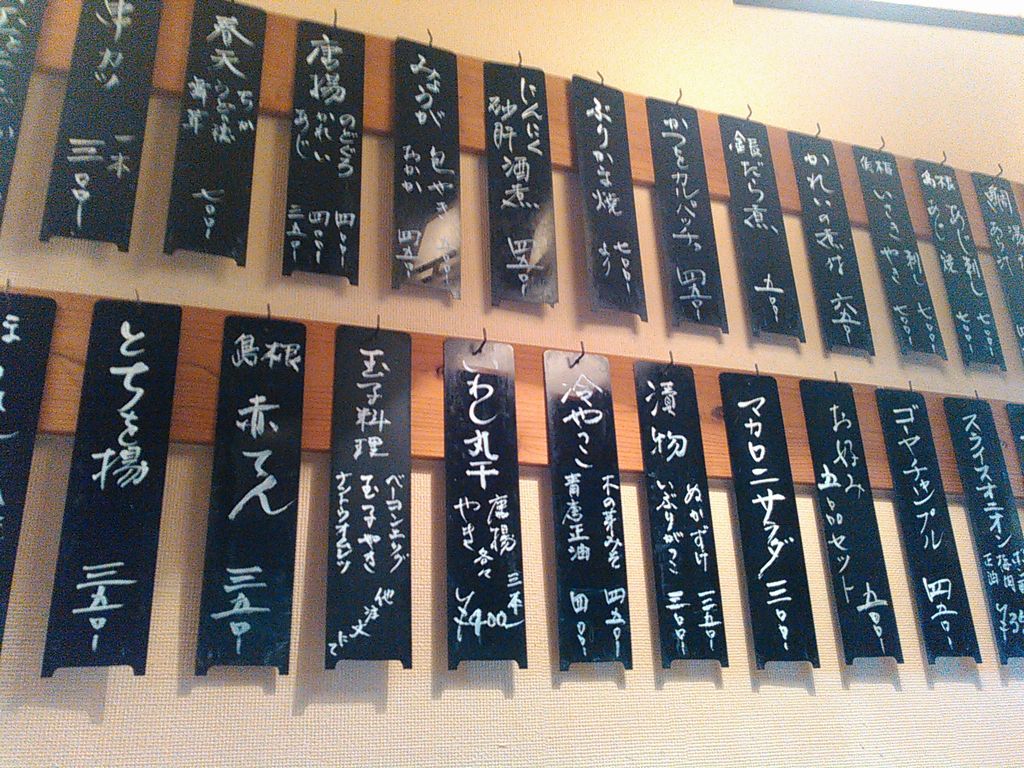 串カツ
一本
三〇〇-
春天
七〇〇-
唐揚
のどぐろ 四〇〇-
かれい 四〇〇-
あじ 三五〇-
みょうが
包やき
おかか
四五〇-
にんにく
砂肝酒煮
四五〇-
ぶりかま焼
七〇〇-
より
かつをカルパッチョ
四五〇-
銀だら煮
五〇-
かれいの煮付
六五〇-
島根
いさき
刺し 七〇〇-
やき 七〇〇-
島根
あじ刺し 七〇〇-
あじ
七〇〇-
鯛
あら汁
とちを揚
三五〇-
島根
赤てん
三五〇-
玉子料理
ベーコンエッグ
玉子やき
ナットウオムレツ
他注文
にて
いわし丸干
唐揚
やき
各々
三本
¥400-
冷やっこ
木の芽みそ 四五〇-
青唐正油 四〇〇-
漬物
ぬかずけ 三五〇-
いぶりがっこ 三〇〇-
マカロニサラダ 三〇〇-
お好み
五品セット
五〇〇-
ゴーヤチャンプル
四五〇-
スライスオニオン
梅肉
正油